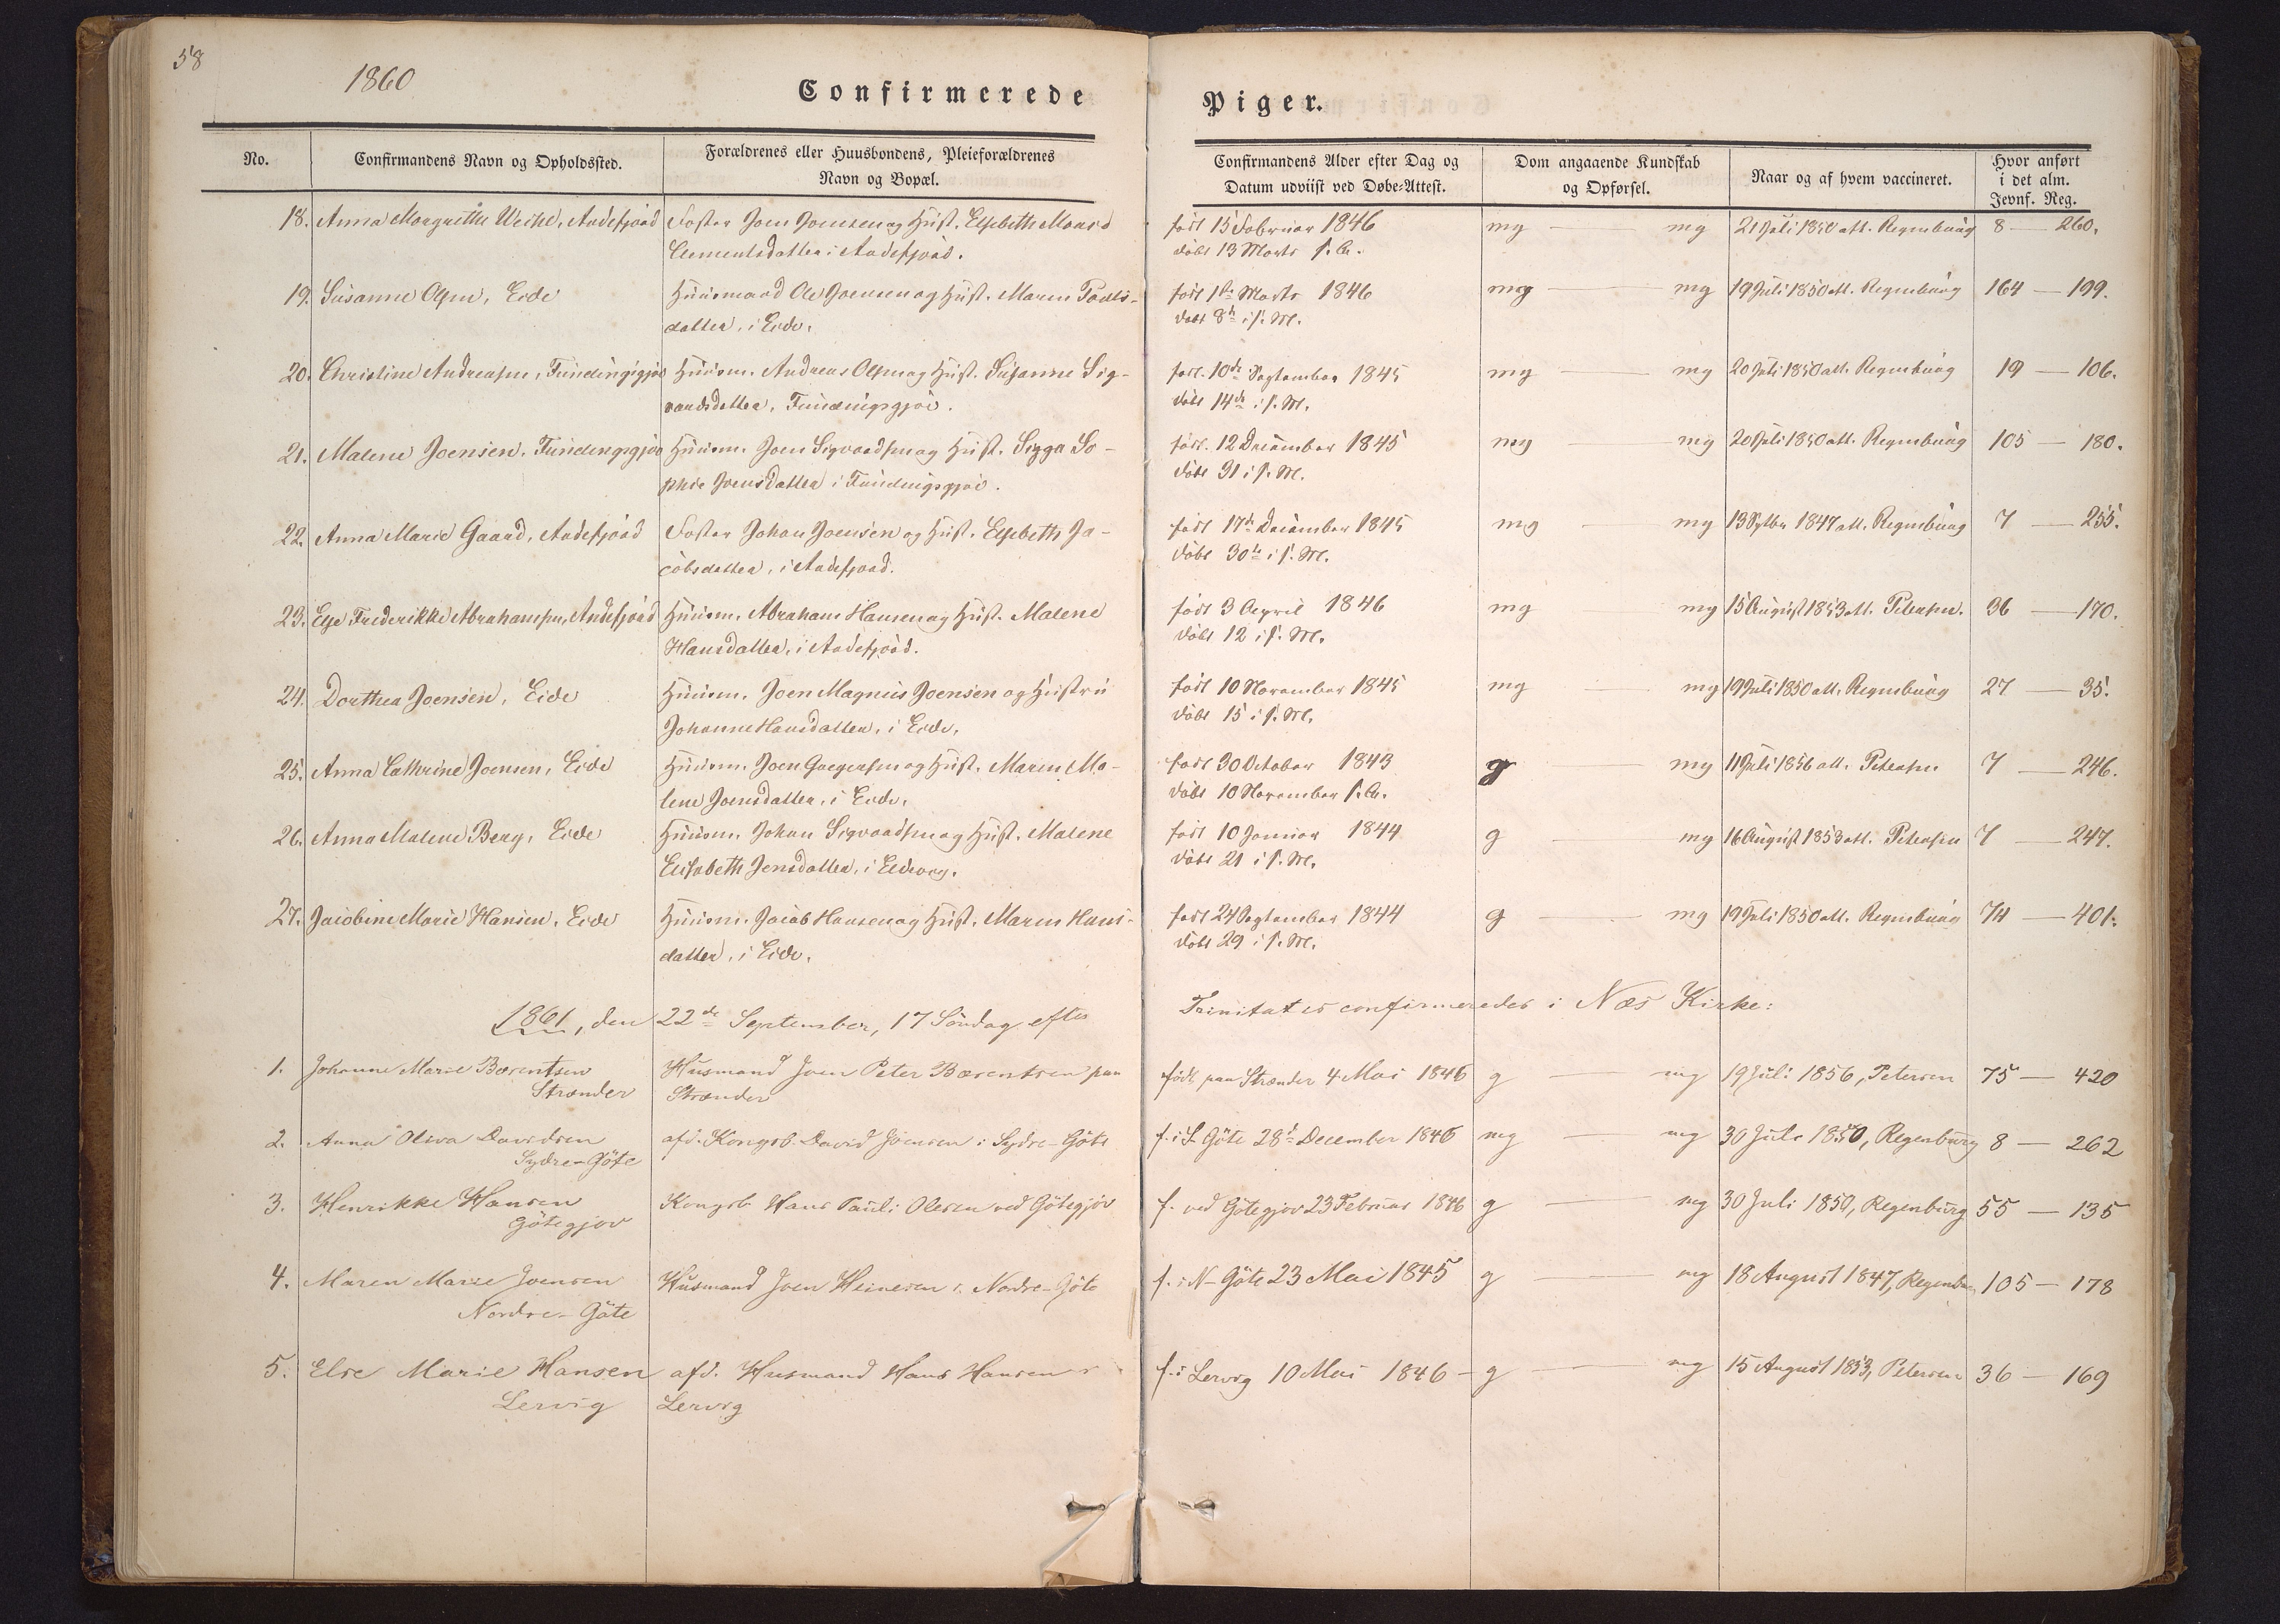 58
1860
Confirmerede Piger.
No.
Confirmandens Navn og Opholdssted.
Forældrenes eller Huusbondens, Pleieforældrenes
Navn og Bopæl.
Confirmandens Alder efter Dag og
Datum udviist ved Døbe-Attest.
Dom angaaende Kundskab
og Opførsel.
Naar og af hvem vaccineret.
Hvor anført
i det alm.
Jevnf. Reg.
18. Anna Margrethe Weihe, Andefjord Joen Joensen og Hust. Elsebeth født 15 Februar 1846 mg — mg 21 Juli 1850 att. Regenburg 8 — 260.
Clementsdatter i Andefjord. døbt 13 Marts s. A.
19. Susanne Olsen, Eide Huusmand Ole Joensen og Hust. Maren Pouls- født 1ste Marts 1846 mg — mg 19 Juli 1850 att. Regenburg 164 — 199.
datter, i Eide. døbt 8de i s. M.
20. Christine Andreasen, Fundingsgjov Huusm. Andreas Olsen og Hust. Susanne Sig- født 10de September 1845 mg — mg 20 Juli 1850 att. Regenburg 19 — 106.
vardsdatter, Fundingsgjov. døbt 14de i s. M.
21. Malene Joensen, Fundingsgjov Huusm. Joen Sigvardsen og Hust. Sigga So- født 12 December 1845 mg — mg 20 Juli 1850 att. Regenburg 105 — 180.
phie Joensdatter i Fundingsgjov. døbt 31 i s. M.
22. Anna Marie Gaard, Andefjord Johan Joensen og Hust. Elsebeth Ja- født 17de December 1845 mg — mg 13 Septbr 1847 att. Regenburg 7 — 255.
cobsdatter, i Andefjord. døbt 30te i s. M.
23. Else Frederikke Abrahamsen, Andefjord Huusm. Abraham Hansen og Hust. Malene født 3 April 1846 mg — mg 15 August 1853 att. Petersen. 36 — 170.
Hansdatter, i Andefjord. døbt 12 i s. M.
24. Dorthea Joensen, Eide Huusm. Joen Magnus Joensen og Hustru født 10 November 1845 mg — mg 19 Juli 1850 att. Regenburg 27 — 35.
Johanne Hansdatter, i Eide. døbt 15 i s. M.
25. Anna Cathrine Joensen, Eide Huusm. Joen og Hust. Maren Ma- født 30 October 1843 g — mg 11 Juli 1856 att. Petersen 7 — 246.
lene Joensdatter, i Eide. døbt 10 November s. A.
26. Anna Malene Berg, Eide Huusm. Johan Sigvardsen og Hust. Malene født 10 Januar 1844 g — mg 16 August 1853 att. Petersen 7 — 247.
Elisabeth Jensdatter, i Eide døbt 21 i s. M.
27. Jacobine Marie Hansen, Eide Huusm. Jacob Hansen og Hust. Maren Hans- født 24 September 1844 g — mg 19 Juli 1850 att. Regenburg 74 — 401.
datter, i Eide. døbt 29 i s. M.
1861, den 22de September, 17 Söndag efter Trinitatis confirmeredes i Næs Kirke:
1. Johanne Marie Bærentsen Husmand Joen Peter Bærentsen paa født paa Strænder 4 Mai 1846 g — mg 19 Juli 1856, Petersen 75 — 420
Strænder Strænder
2. Anna Oliva Davidsen afd. Kongsb. David Joensen i Sydre-Göte f. i S. Göte 28de December 1845 mg — mg 30 Juli 1850, Regenburg 8 — 262
Sydre-Göte
3. Henrikke Hansen Kongsb Hans Pauli Olesen ved Götegjov f. ved Götegjov 23 Februar 1846 g — mg 30 Juli 1850, Regenburg 55 — 135
Götegjov
4. Maren Marie Joensen Husmand Joen Heinesen i Nordre-Göte f. i N-Göte 23 Mai 1845 g — mg 18 August 1847, 105 — 178
Nordre-Göte
5. Else Marie Hansen afd. Husmand Hans Hansen i f. i Lervig 10 Mai 1846 — g — mg 15 August 1853, Petersen 36 — 169
Lervig Lervig